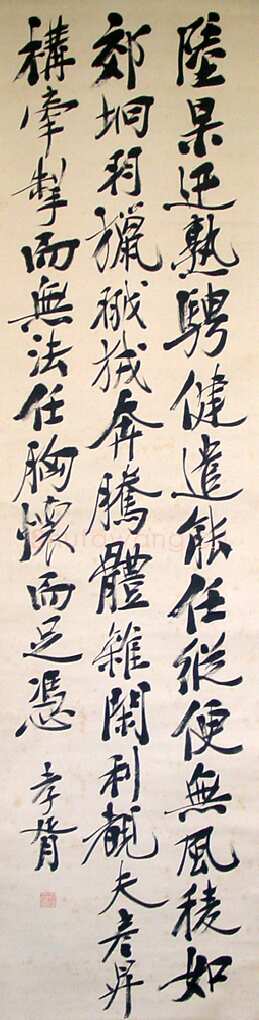 陸杲迅熟騁健遣能任縱便無風稜如
郊坰羽獵械奔騰體雜閑利觀夫彥昇
構牽掣而無法任胸懷而足憑
孝胥